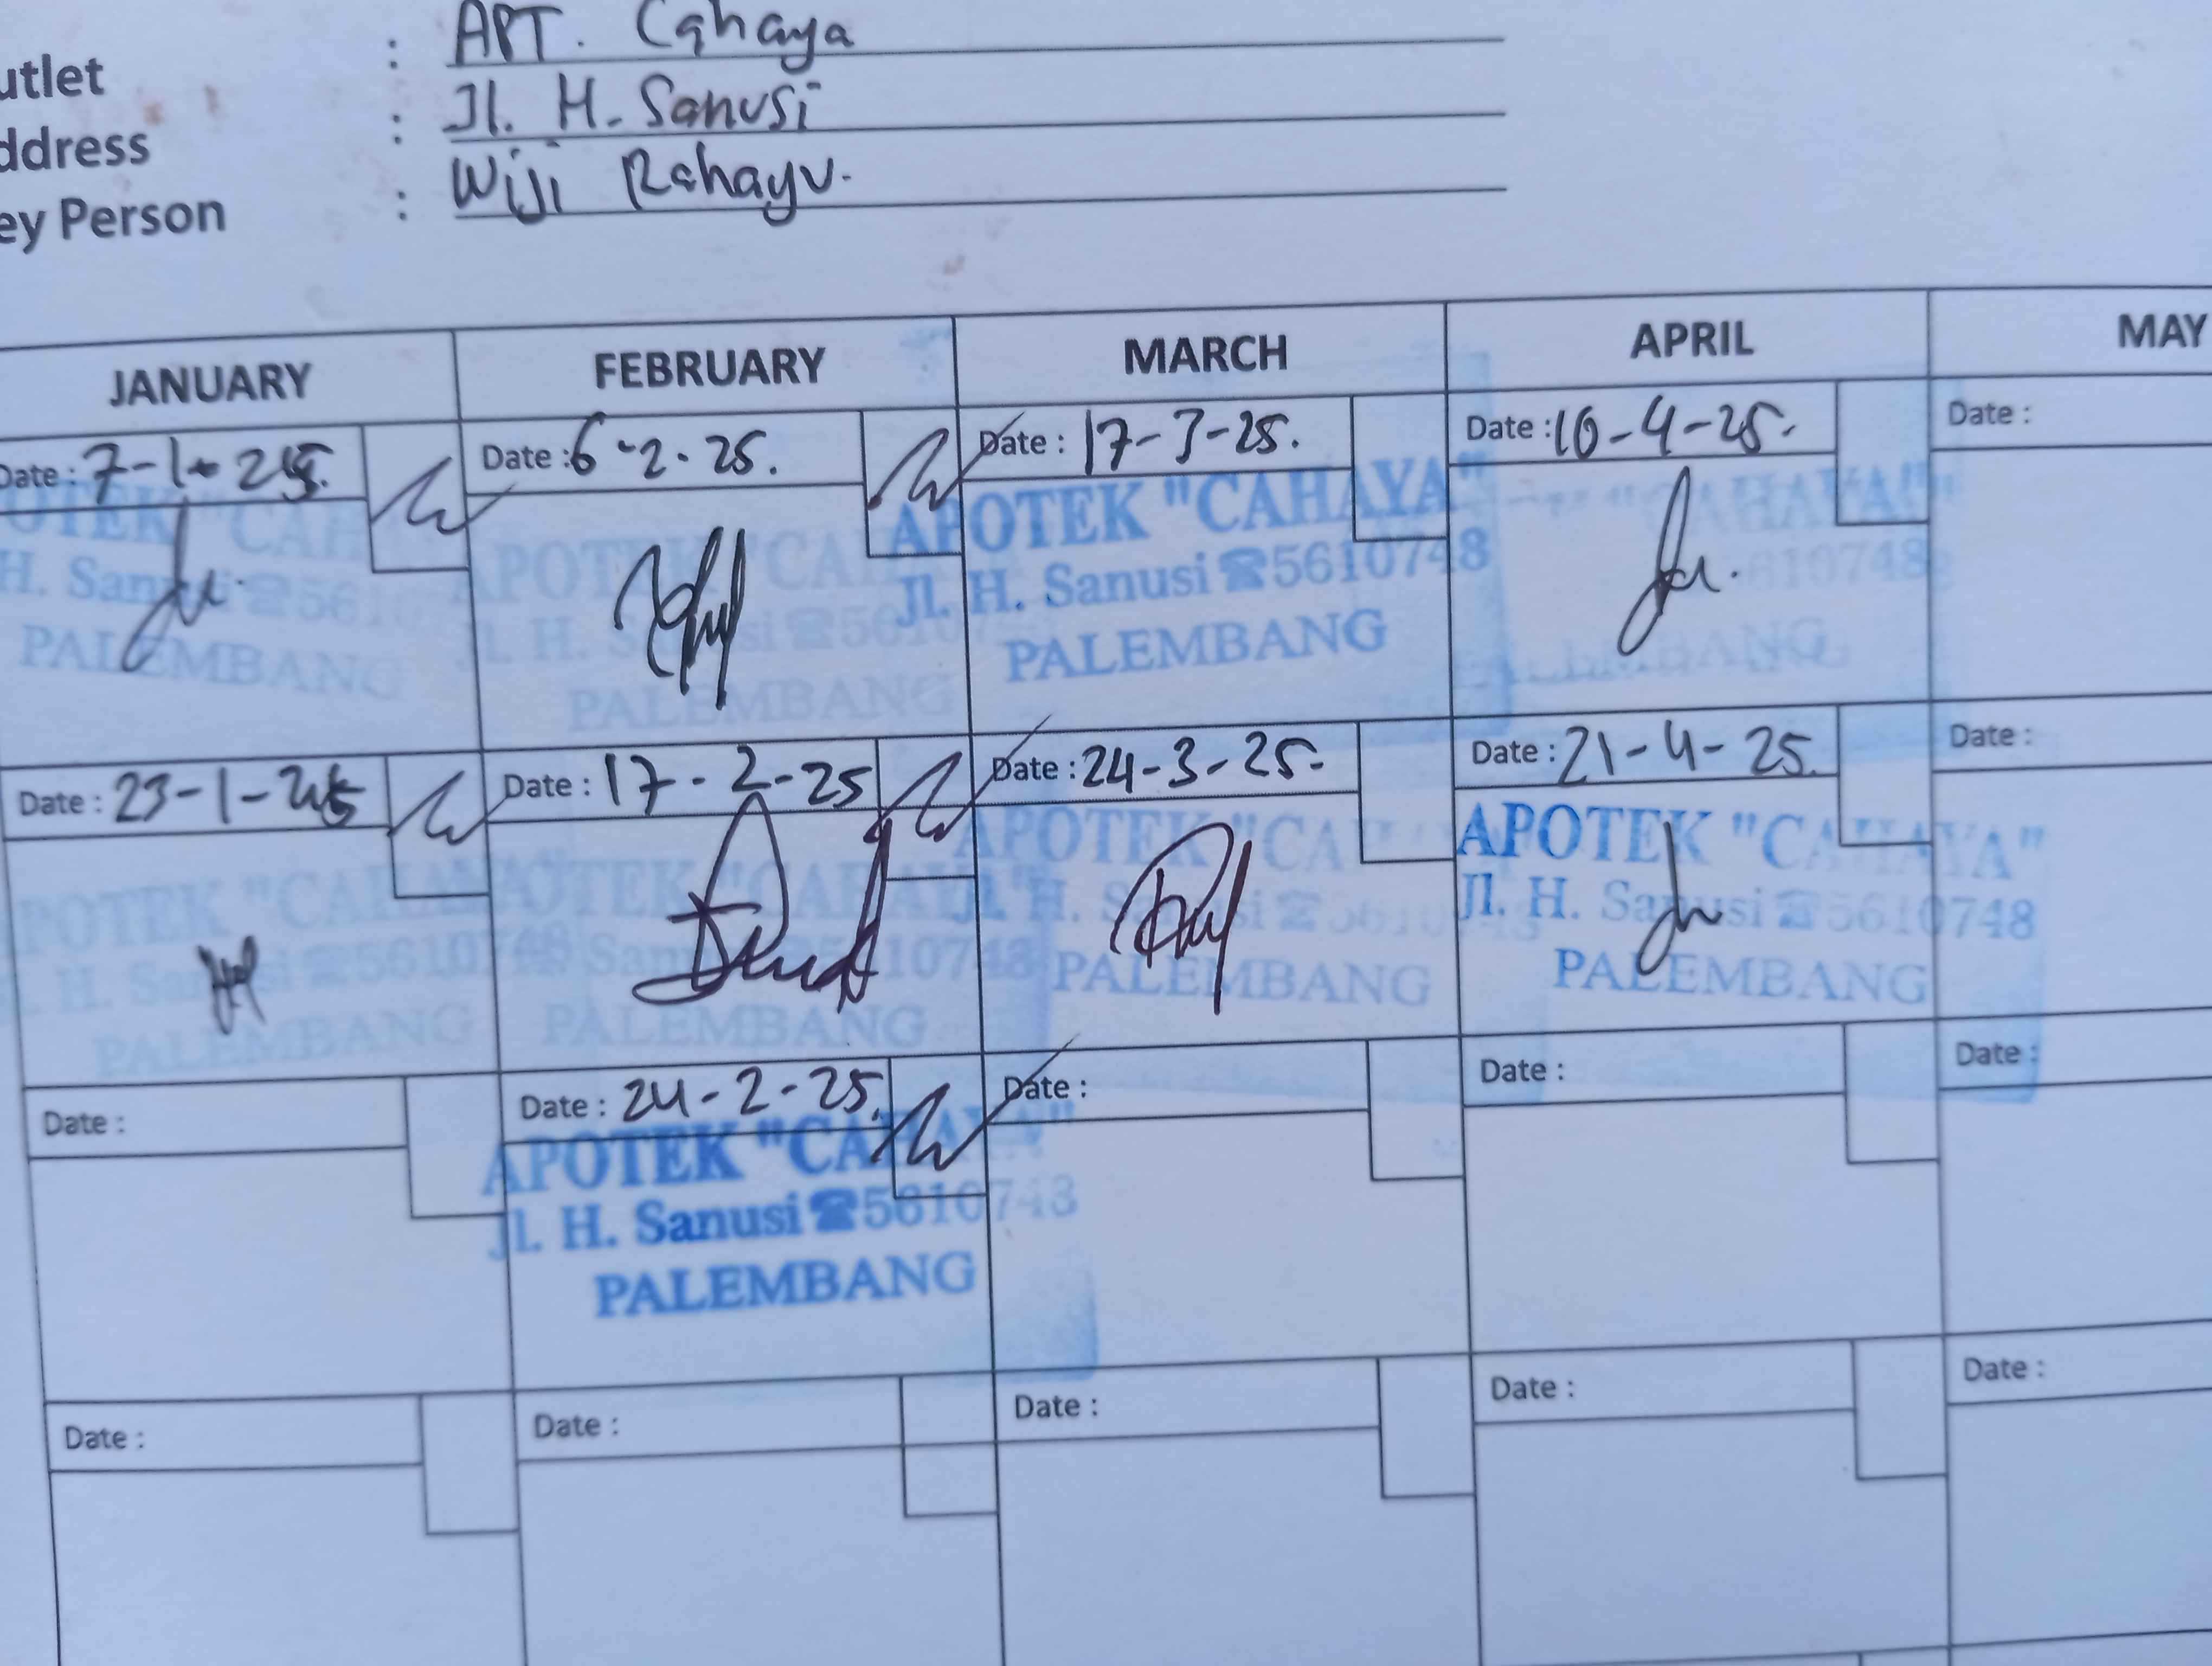 utlet : APT. Cahaya
ddress : Jl. H. Sanusi
ey Person : Wiji Rahayu.
JANUARY FEBRUARY MARCH APRIL MAY
Date : 7-1-25. Date : 6-2-25. Date : 17-3-25. Date : 10-4-25. Date :
POTEK "CAH APOTEK "CA APOTEK "CAHAYA" "CAHAYA"
H. Sanusi ☎5610 Jl. H. Sanusi ☎5610 Jl. H. Sanusi ☎5610748 610748
PALEMBANG PALEMBANG PALEMBANG PALEMBANG
Date : 23-1-25 Date : 17-2-25 Date : 24-3-25. Date : 21-4-25. Date :
POTEK "CAHAYA" OTEK "CAHAYA" APOTEK "CAHA APOTEK "CAHAYA"
H. Sanusi ☎5610748 Sanusi ☎5610748 H. Sanusi ☎5610748 Jl. H. Sanusi ☎5610748
PALEMBANG PALEMBANG PALEMBANG PALEMBANG
Date : Date : 24-2-25. Date : Date : Date :
APOTEK "CAHAYA"
Jl. H. Sanusi ☎5610748
PALEMBANG
Date : Date : Date : Date : Date :